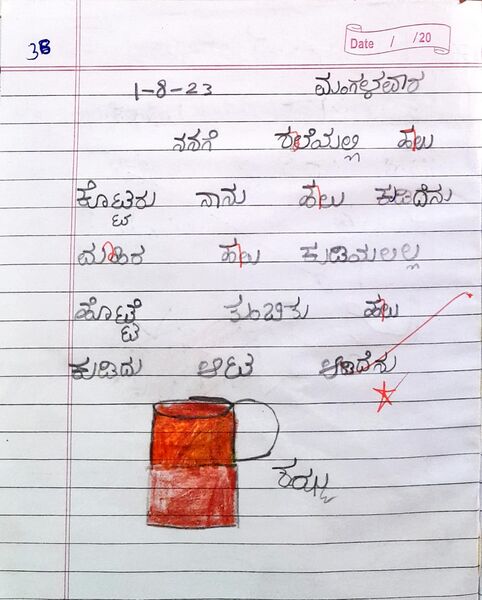 38
Date / /20
1-8-23 ಮಂಗಳವಾರ
ನನಗೆ ಶಾಲೆಯಲ್ಲಿ ಹಾಲು
ಕೊಟ್ಟರು ನಾನು ಹಾಲು ಕುಡಿದೆನು
ಮಿಹಿರ ಹಾಲು ಕುಡಿಯಲಲ್ಲ
ಹೊಟ್ಟೆ ತುಂಬಿತು ಹಾಲು
ಕುಡಿದು ಆಟ ಆಡಿದೆನು